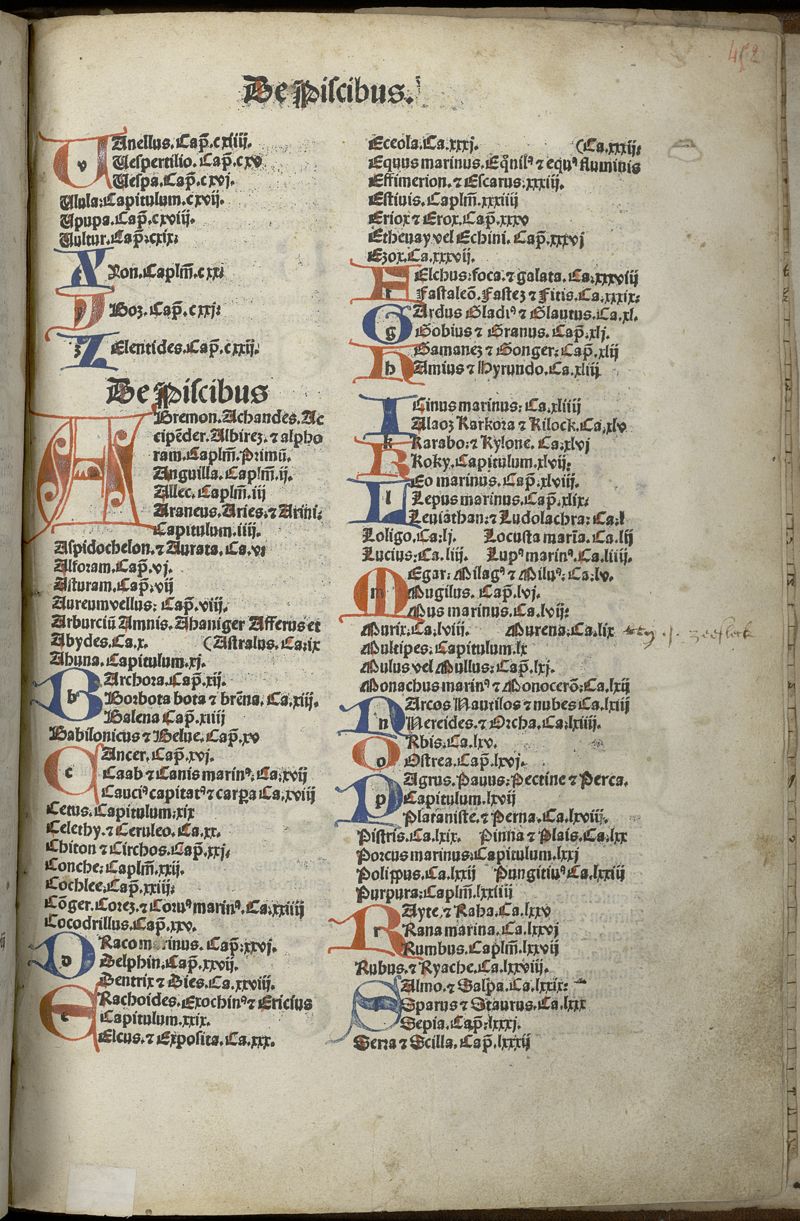 452
De Piscibus.
VAnellus. Cap̄. cxiiij.
v Vespertilio. Cap̄. cxv
Vespa. Cap̄. cxvj.
Vlula: Capitulum. cxvij.
Vpupa. Cap̄. cxviij.
Vultur. Cap̄: cxix:
XYon. Caplm̄. cxx:
Yboz. Cap̄. cxxj:
z ZElentides. Cap̄. cxxij.
De Piscibus
ABremon. Achandes. Ac
cipēder. Albirez. ⁊ alpho
ram. Caplm̄. Primū.
Anguilla. Caplm̄. ij.
Allec. Caplm̄. iij
Araneus. Aries. ⁊ Arini:
Capitulum. iiij.
Aspidochelon. ⁊ Aurata. Ca. v:
Alforam. Cap̄. vj.
Asturam. Cap̄: vij
Aureumvellus: Cap̄. viij.
Arburciū Amnis. Ahaniger Afferus et
Abydes. Ca. x. (Astralus. Ca: ix
Ahuna. Capitulum. xj.
BArchora. Cap̄. xij.
b Borbota bota ⁊ brēna. Ca, xiij.
Balena Cap̄. xiiij
Babilonicus ⁊ Belue. Cap̄. xv
CAncer. Cap̄. xvj.
c Caab ⁊ Canis marinꝰ: Ca; xvij
Cauciꝰ capitatꝰ ⁊ carpa Ca, xviij
Cetus. Capitulum: xix
Celethy. ⁊ Ceruleo. Ca. xx.
Chiton ⁊ Circhos. Cap̄. xxj:
Conche: Caplm̄. xxij.
Cochlee. Cap̄. xxiij:
Cōger. Corez. ⁊ Coruꝰ marinꝰ. Ca: xxiiij
Cocodrillus. Cap̄. xxv.
DRaco marinus. Cap̄: xxvj.
D Delphin. Cap̄. xxvij.
Dentrix ⁊ Dies. Ca. xxviij.
ERachoides. Exochinꝰ ⁊ Ericius
e Capitulum. xxix.
Elcus. ⁊ Exposita. Ca. xxx.
Eceola. Ca. xxxj. (Ca. xxxij:
Equus marinus. Eq̄nilꝰ ⁊ equꝰ fluminis
Effimerion. ⁊ Escarus. xxxiij.
Estiuis. Caplm̄. xxxiiij
Eriox ⁊ Erox. Cap̄. xxxv
Ethenay vel Echini. Cap̄. xxxvj
Ezox. Ca. xxxvij.
FElchus: foca. ⁊ galata. Ca: xxxviij
f Fastaleō. Fastez ⁊ Fitis. Ca. xxxix:
GArdus Gladiꝰ ⁊ Glautus. Ca. xl.
g Gobius ⁊ Granus. Cap̄. xlj.
Gamanez ⁊ Gonger: Cap̄. xlij
h HAmius ⁊ Hyrundo. Ca. xliij
IGinus marinus: Ca. xliiij
Alaoz Karkora ⁊ Kilock. Ca, xlv
k Karabo: ⁊ Kylone. Ca: xlvj
Koky. Capitulum. xlvij.
LEo marinus. Cap̄. xlviij.
l Lepus marinus. Cap̄. xlix:
Leuiathan: ⁊ Ludolachra: Ca: l
Loligo. Ca: lj. Locusta marīa. Ca. lij
Lucius: Ca. liij. Lupꝰ marinꝰ. Ca. liiij.
MEgar: Milagꝰ ⁊ Miluꝰ: Ca: lv.
m Mugilus. Cap̄. lvj.
Mus marinus. Ca. lvij:
Murix: Ca. lviij. Murena: Ca. lix
Multipes: Capitulum. lx
Mulus vel Mullus: Cap̄. lxj.
Monachus marinꝰ ⁊ Monocerō: Ca: lxij
NArcos Nautilos ⁊ nubes Ca. lxiij
n Nereides. ⁊ Orcha. Ca: lxiiij.
ORbis. Ca. lxv.
o Ostrea. Cap̄. lxvj.
PAgrus. Pauus: Pectine ⁊ Perca.
p Capitulum. lxvij
Plataniste. ⁊ Perna. Ca, lxviij.
Pistris. Ca. lxix. Pinna ⁊ Plais. Ca: lxx
Porcus marinus: Capitulum. lxxj
Polippus. Ca. lxxij Pungitiuꝰ. Ca. lxxiij
Purpura: Caplm̄. lxxiiij
RAyte. ⁊ Raba. Ca. lxxv
r Rana marina. Ca. lxxvj
Rumbus. Caplm̄. lxxvij
Rubus. ⁊ Ryache. Ca. lxxviij.
SAlmo. ⁊ Salpa. Ca. lxxix:
Sparus ⁊ Staurus. Ca. lxxx
Sepia. Cap̄: lxxxj.
Serra ⁊ Scilla. Cap̄. lxxxij